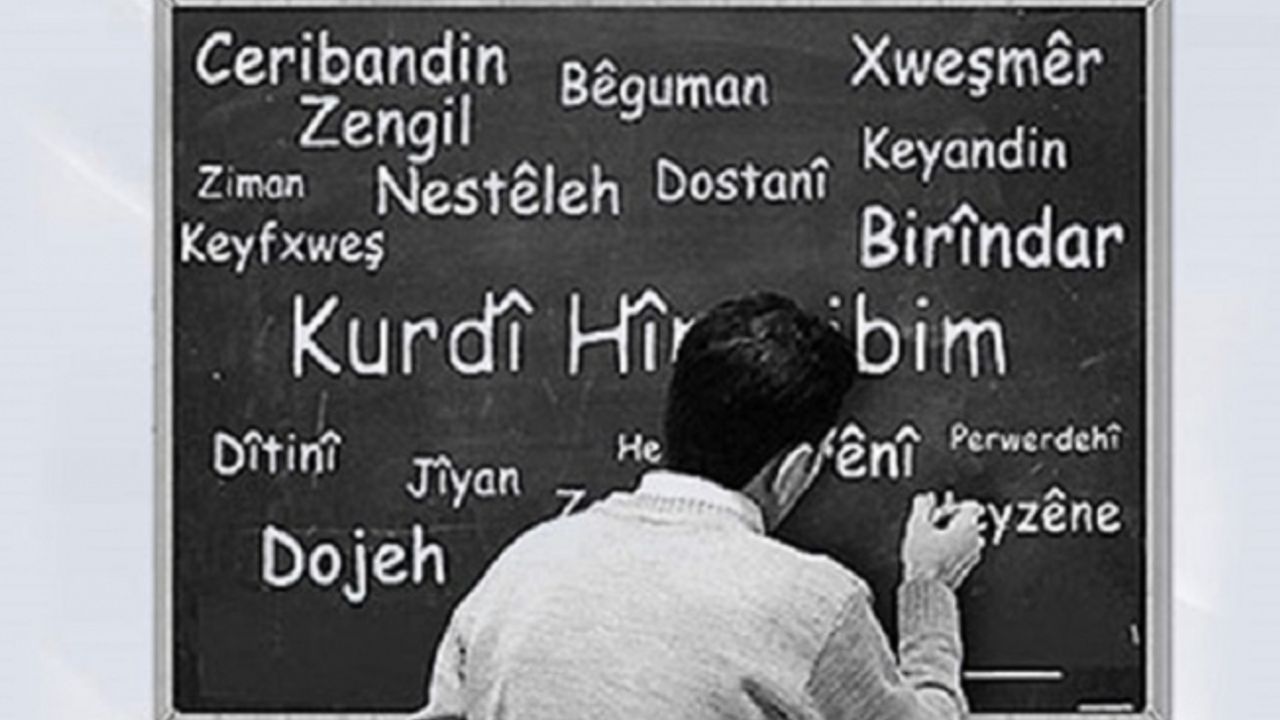 Ceribandin Bêguman Xweşmêr
Zengil Keyandin
Ziman Nestêleh Dostanî
Keyfxweş Birîndar
Kurdî
Dîtinî Jîyan Perwerdehî
Dojeh